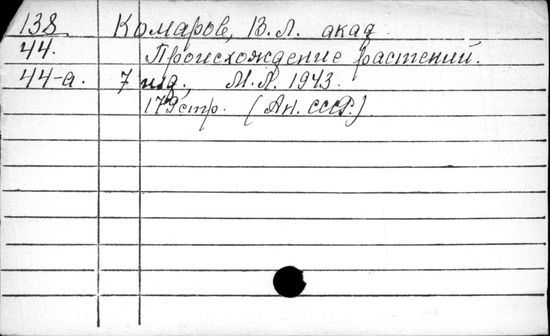 138 Комаров, В.Л. акад
44. Происхождение растений.
44-а. 7 изд., М.Л. 1943.
179 стр. (Ан. СССР.)